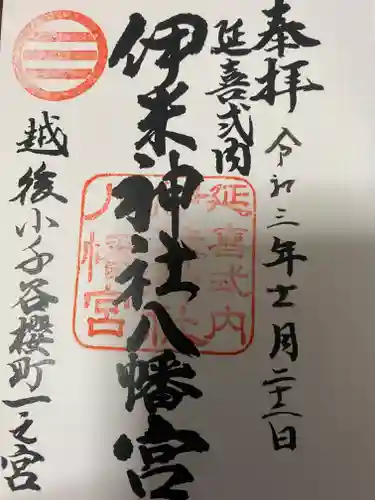 奉拝
令和三年十一月二十二日
延喜式内
伊米神社八幡宮
越後小千谷櫻町一之宮
延喜式内
八幡宮